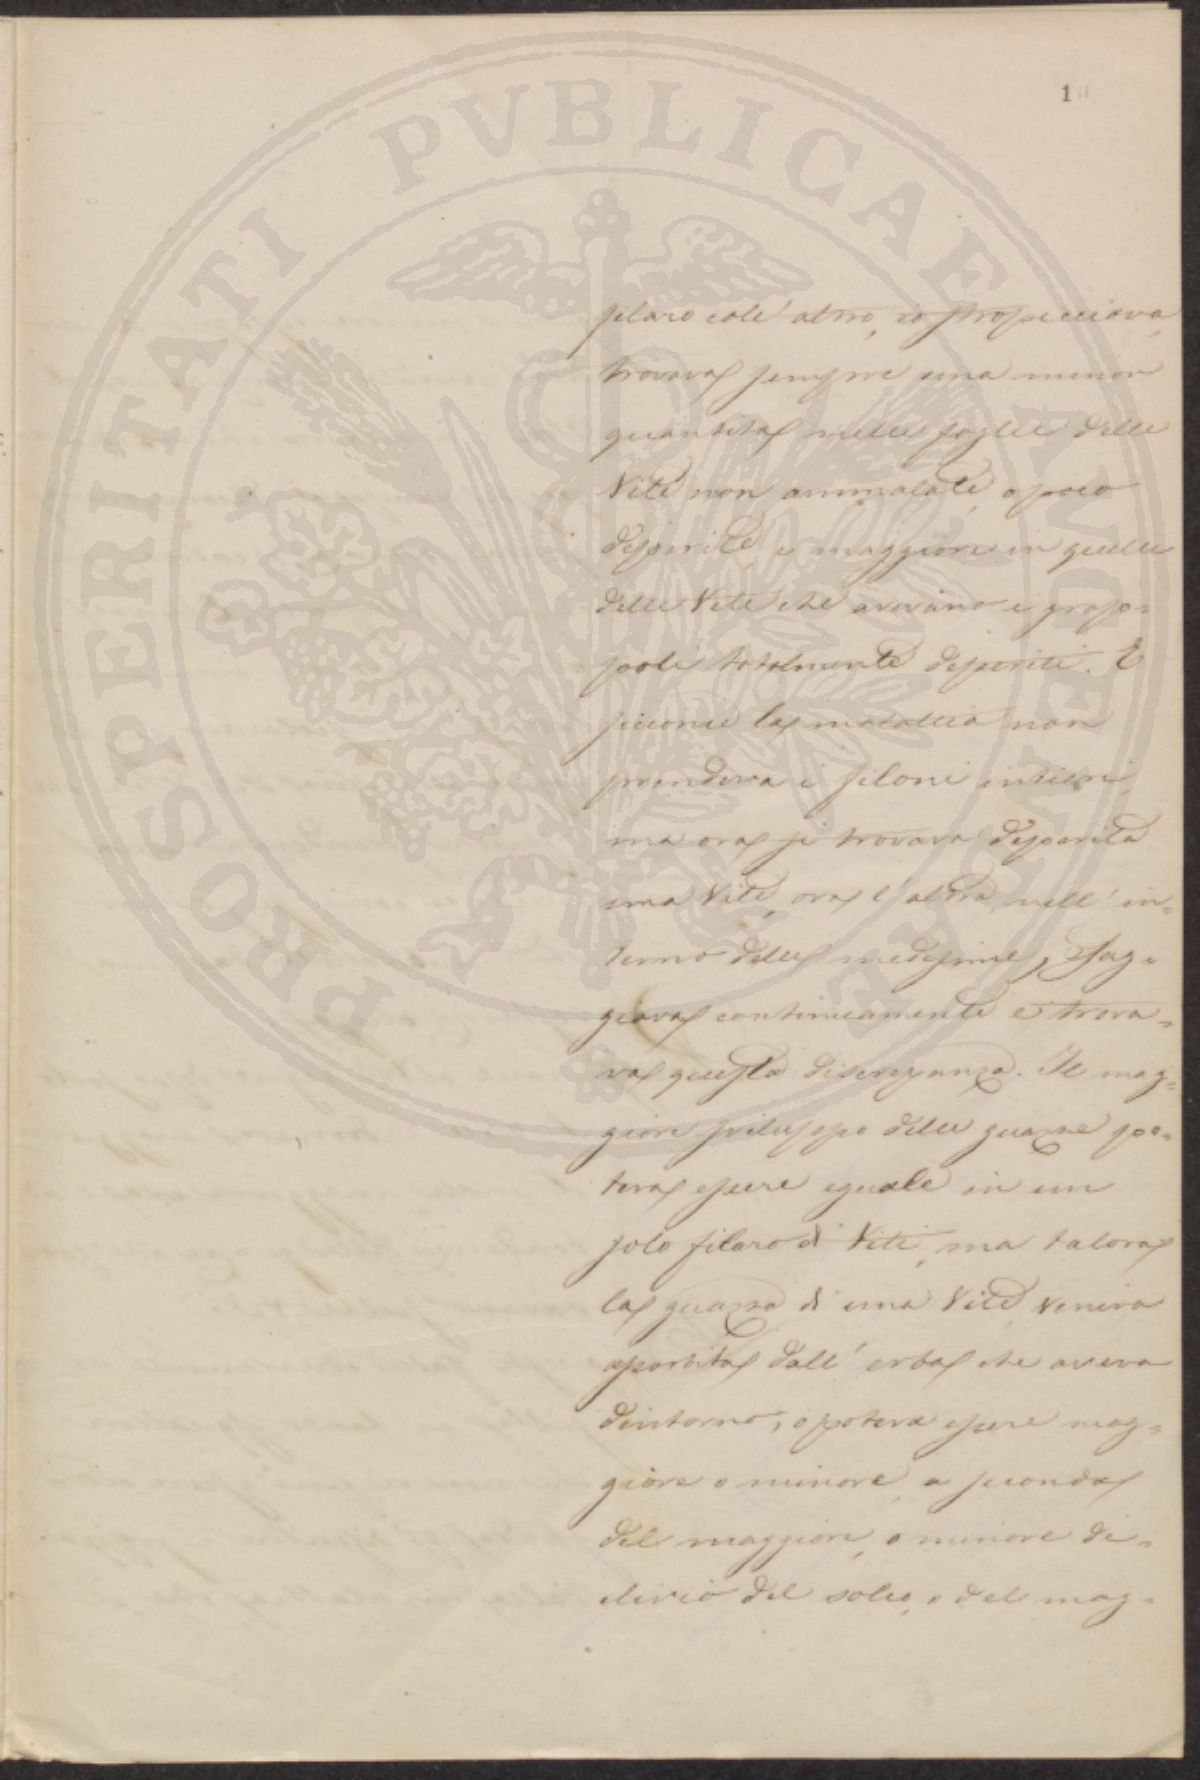 1
PROSPERITATI PVBLICAE AVGENDAE
filaro coll' altro, io stropicciava,
trovava sempre una minor
quantità nelle foglie delle
Viti non ammalate, o poco
deperite, e maggiore in quelle
delle Viti che avevano i grap=
poli totalmente deperiti. E
siccome la malattia non
prendeva i filoni intieri,
ma ora si trovava deperita
una Vite, ora l'altra nell' in=
terno delle medesime,
giava continuamente e trova=
va questa discrepanza. Il mag=
giore sviluppo delle guazze po=
teva essere eguale in un
solo filaro di Viti, ma talora
la guazza di una Vite, veniva
assorbita dall' erba che aveva
dintorno, o poteva essere mag=
giore o minore, a seconda
del maggiore, o minore de=
clivio del solco, o del mag=